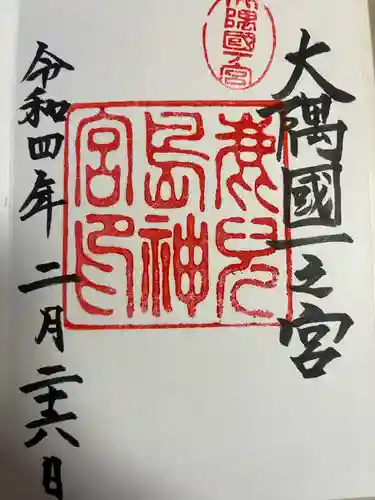 大隅國一之宮
大隅國一宮
鹿兒
島神
宮印
令和四年二月二十六日